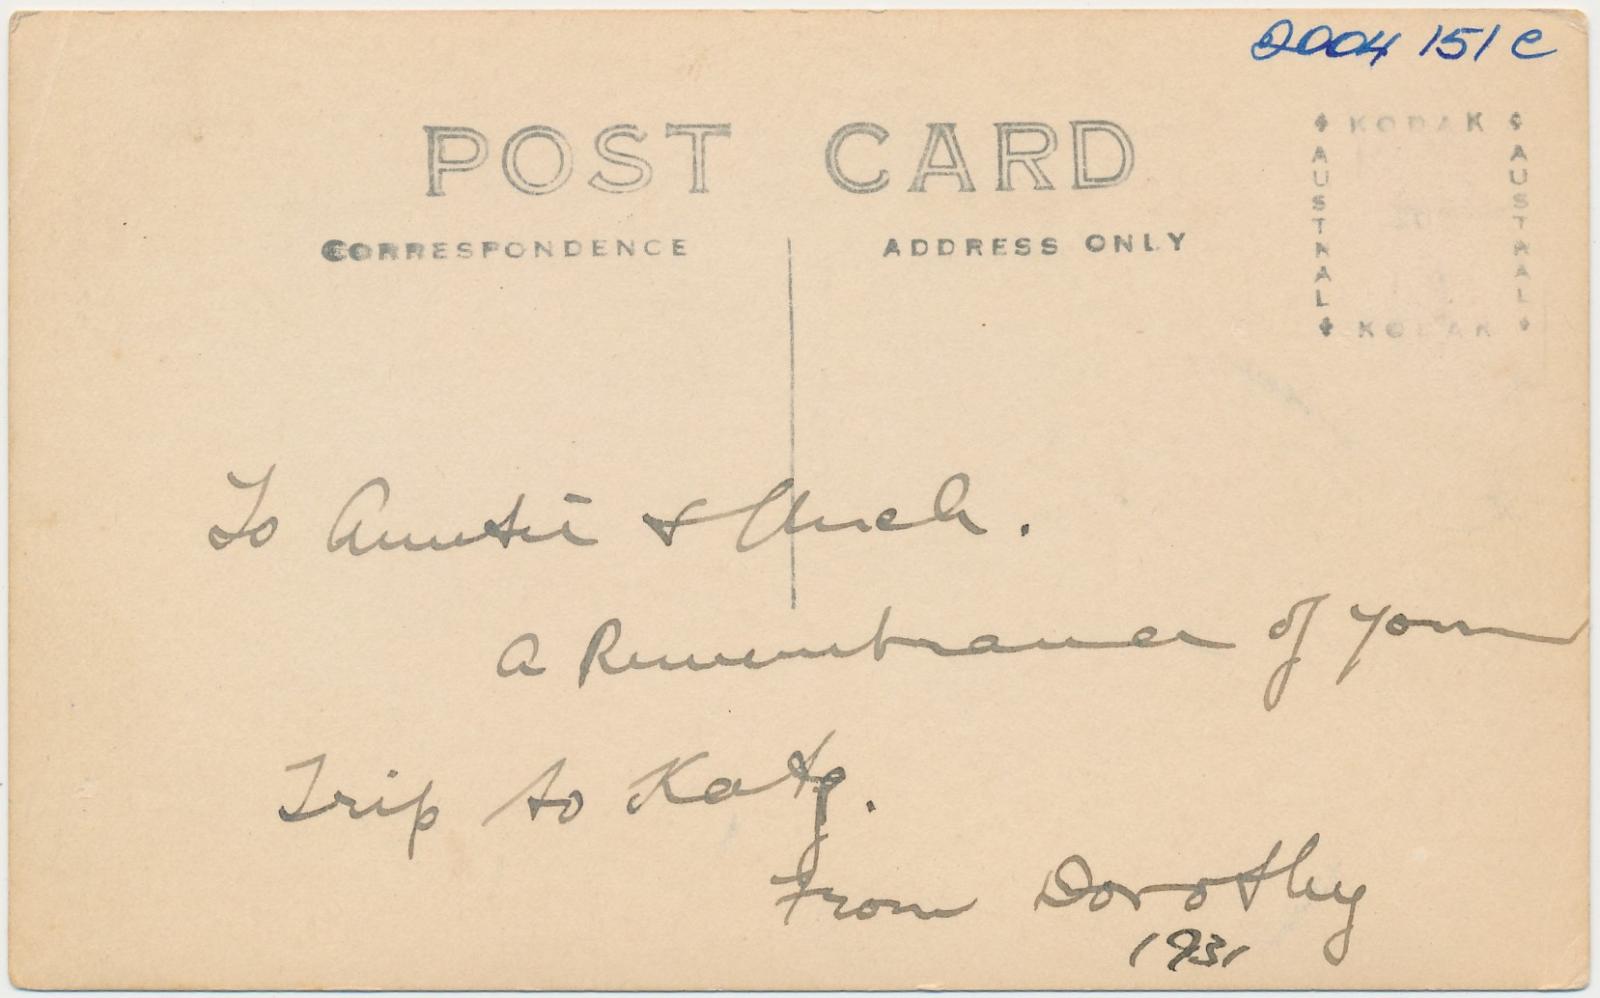 2004 151 c
POST CARD
KODAK
AUSTRAL
AUSTRAL
KODAK
CORRESPONDENCE
ADDRESS ONLY
To Auntie & Uncle.
a Remembrance of your
Trip to Katg.
From Dorothy
1931